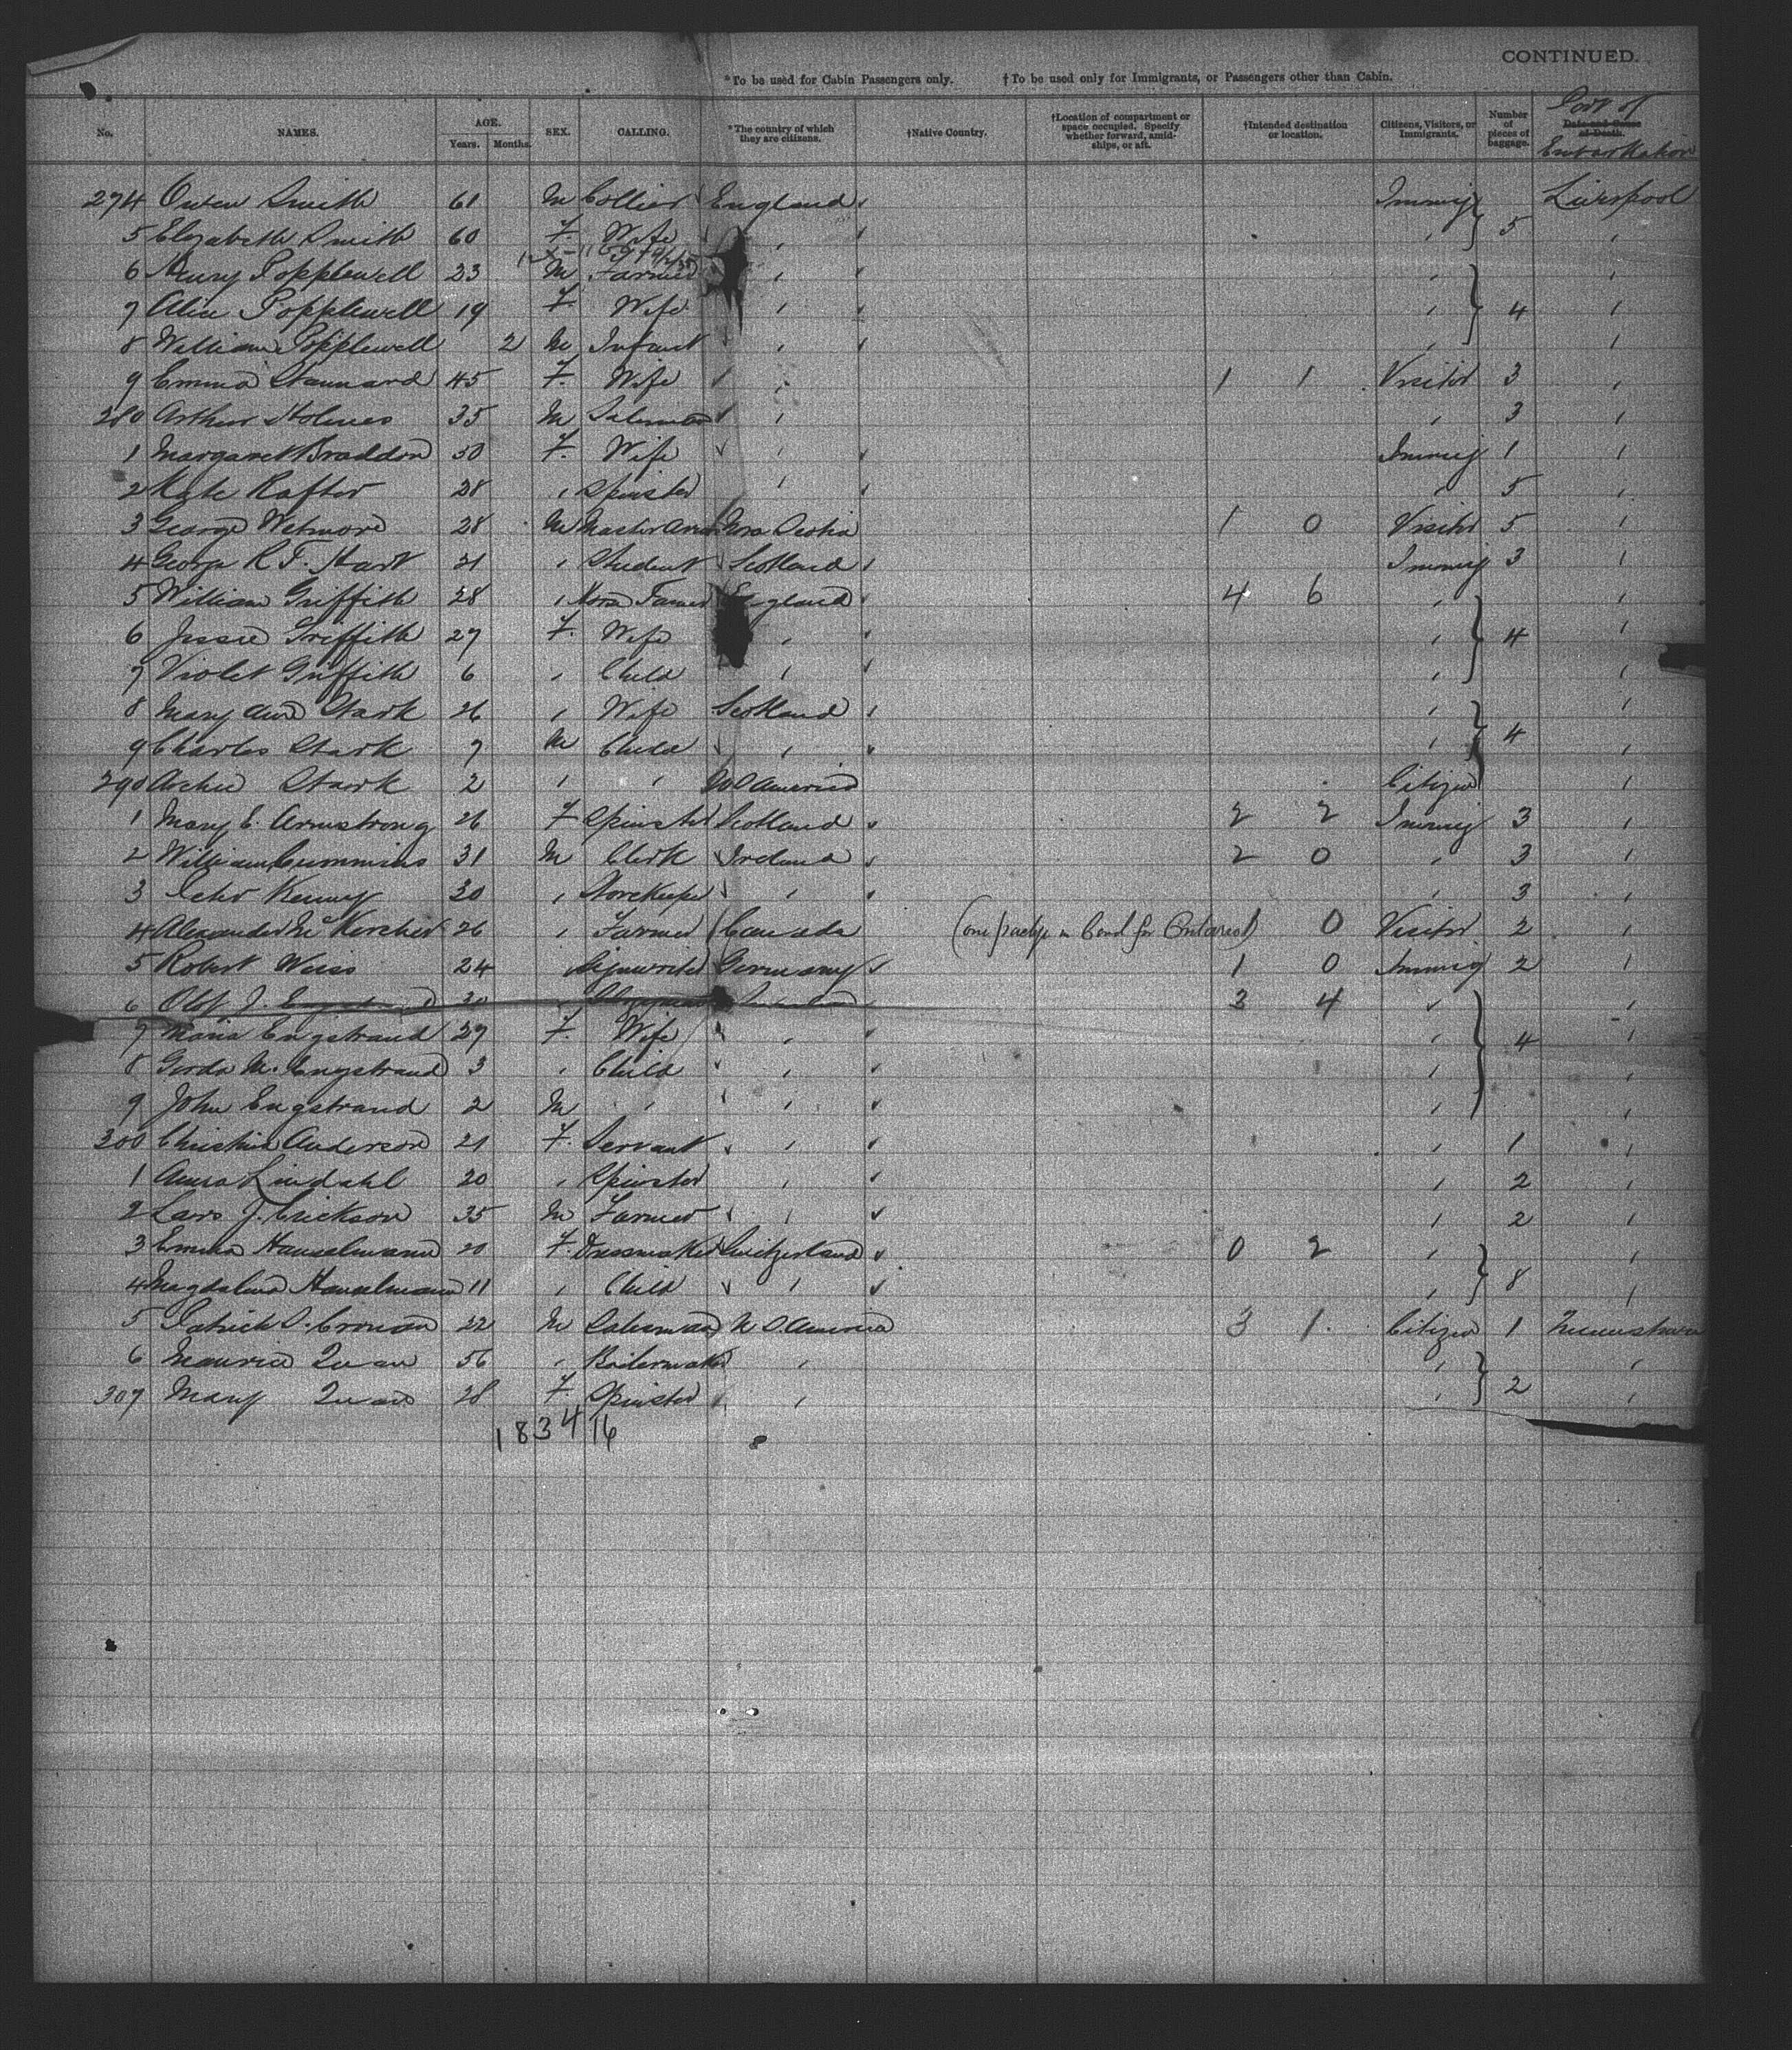 CONTINUED.
*To be used for Cabin Passengers only. †To be used only for Immigrants, or Passengers other than Cabin.
No. NAMES. AGE. Years. Months. SEX. CALLING. *The country of which they are citizens. †Native Country. †Location of compartment or space occupied. Specify whether forward, amid-ships, or aft. †Intended destination or location. Citizens, Visitors, or Immigrants. Number of pieces of baggage. Date and Cause of Death. Port of Embarkation
274 Owen Smith 61 M Collier England Immig Liverpool
5 Elizabeth Smith 60 F. Wife " " 5 "
6 Henry Popplewell 23 M Farmer " " "
7 Alice Popplewell 19 F. Wife " " 4 "
8 William Popplewell 2 M Infant " " "
9 Emma Stannard 45 F. Wife " 1 1 Visitor 3 "
280 Arthur Holmes 35 M Salesman " " 3 "
1 Margaret Braddon 50 F. Wife " Immig 1 "
2 Kate Rafter 28 " Spinster " " 5 "
3 George Wetmore 28 M Master Nova Scotia 1 0 Visitor 5 "
4 George R. F. Hart 21 " Student Scotland Immig 3 "
5 William Griffith 28 " Farmer England 4 6 " "
6 Jessie Griffith 27 F. Wife " " 4 "
7 Violet Griffith 6 " Child " " "
8 Mary Ann Stark 26 " Wife Scotland " "
9 Charles Stark 7 M Child " " 4 "
290 Archie Stark 2 " " U S America Citizen "
1 Mary E. Armstrong 26 F Spinster Scotland 2 2 Immig 3 "
2 William Cummins 31 M Clerk Ireland 2 0 " 3 "
3 Kenny 30 " Storekeeper " " 3 "
4 Alexander McKercher 26 " Farmer Canada (one package in Bond for Ontario) 0 Visitor 2 "
5 Robert Weiss 24 " Signwriter Germany 1 0 Immig 2 "
6 Olof J. Engstrand 30 " 3 4 " "
7 Maria Engstrand 27 F. Wife " " 4 "
8 Gerda M. Engstrand 3 " Child " " "
9 John Engstrand 2 M " " " "
300 Christina Anderson 21 F. Servant " " 1 "
1 Anna Lindahl 20 " Spinster " " 2 "
2 Lars J. Erickson 35 M Farmer " " 2 "
3 Emma Hauselmann 20 F. Dressmaker Switzerland 0 2 " "
4 Magdalena Hauselmann 11 " Child " " 8 "
5 Patrick S. Cronan 22 M Salesman U S. America 3 1 Citizen 1 Queenstown
6 Maurice Quan 56 " Boilermaker " " "
307 Mary Quan 28 F. Spinster " " 2 "
1 8 3 4 16